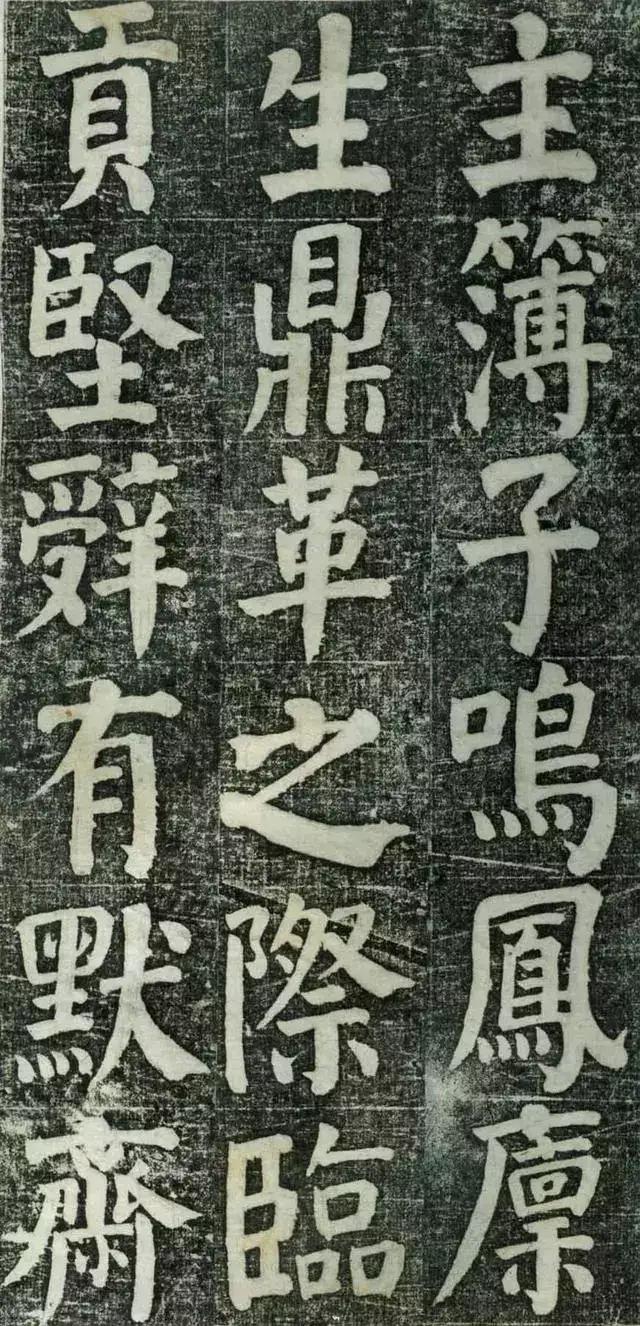 主簿子鳴鳳廩
生鼎革之際臨
貢堅辤有默齋